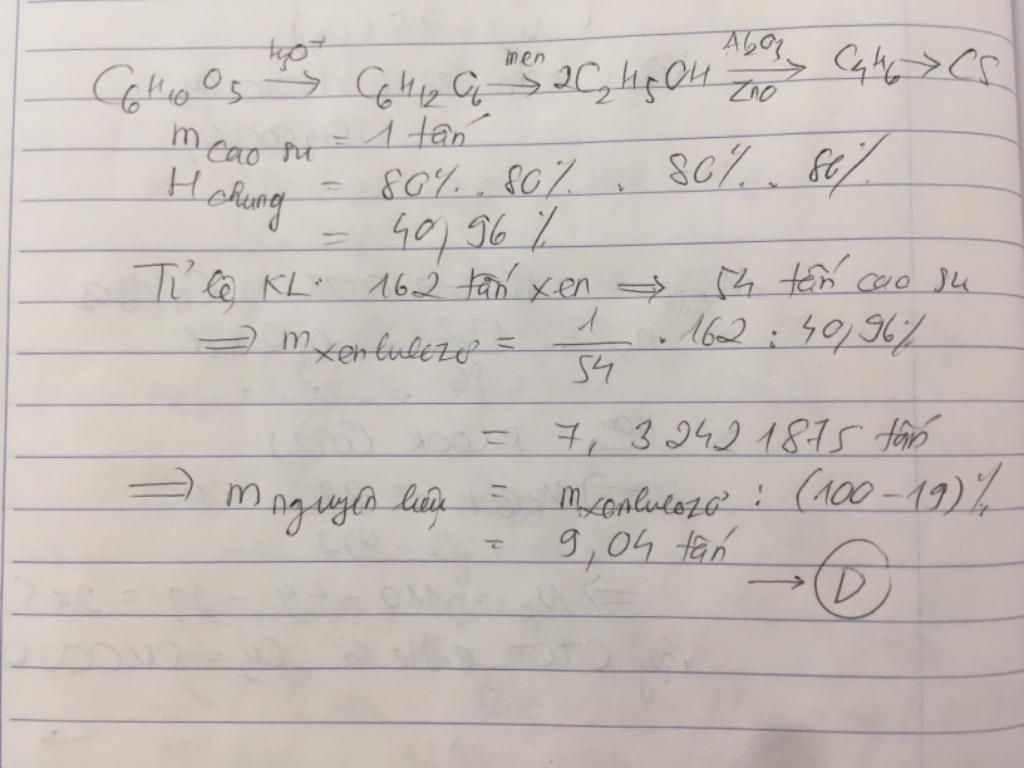 C6H10O5 —H3O+→ C6H12O6 —men→ 2C2H5OH —Al2O3/ZnO→ C4H6 → CS
m cao su = 1 tấn
H chung = 80% . 80% . 80% . 80%
= 40,96%
Tỉ lệ KL: 162 tấn xen ⟹ 54 tấn cao su
⟹ m xenlulozơ = 1/54 . 162 : 40,96%
= 7,32421875 tấn
⟹ m nguyên liệu = m xenlulozơ : (100 - 19)%
= 9,04 tấn
→ D